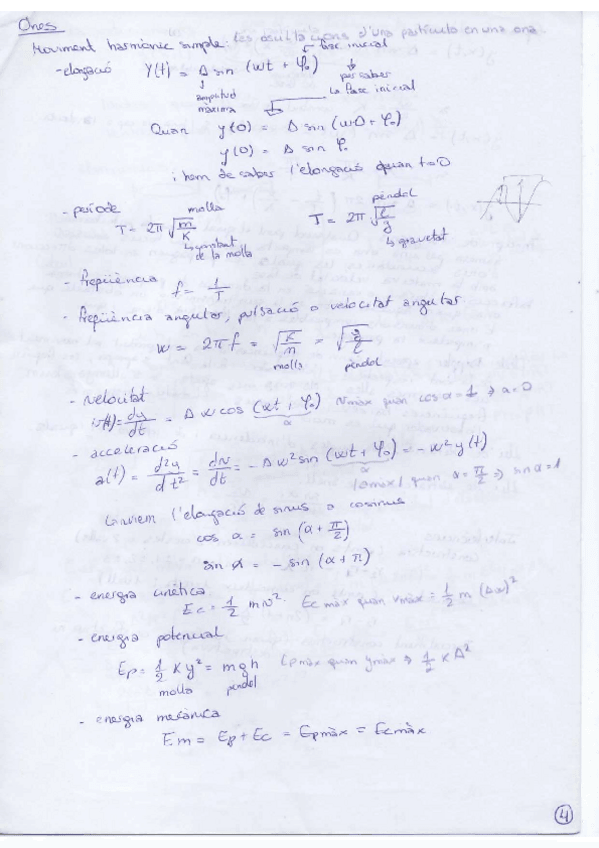 Ones
Moviment harmònic simple: les oscil·lacions d'una partícula en una ona
fase inicial
- elongació Y(t) = A sin (ωt + φ₀)
amplitud màxima
per saber la fase inicial
Quan y(0) = A sin (ω0 + φ₀)
y(0) = A sin φ₀
i hem de saber l'elongació quan t=0
- període
molla
T = 2π √(m/K)
constant de la molla
pèndol
T = 2π √(l/g)
gravetat
- freqüència
f = 1/T
- freqüència angular, pulsació o velocitat angular
ω = 2πf = √(K/m) = √(g/l)
molla pèndol
- velocitat
v(t) = dy/dt = A ω cos (ωt + φ₀) vmàx quan cos α = 1 ⇒ a = 0
α
- acceleració
a(t) = d²y/dt² = dv/dt = -A ω² sin (ωt + φ₀) = -ω² y(t)
α
|amàx| quan α = π/2 ⇒ sin α = 1
Canviem l'elongació de sinus a cosinus
cos α = sin (α + π/2)
sin α = - sin (α + π)
- energia cinètica
Ec = 1/2 mv². Ec màx quan vmàx = 1/2 m (Aω)²
- energia potencial
Ep = 1/2 K y² = mgh Epmàx quan ymàx ⇒ 1/2 K A²
molla pèndol
- energia mecànica
Em = Ep + Ec = Epmàx = Ecmàx
4